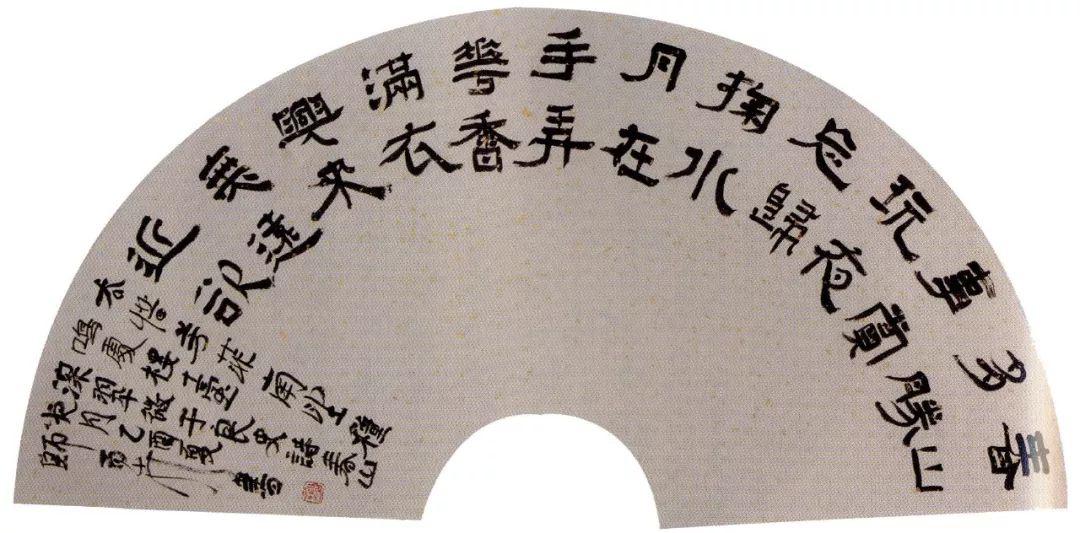 春山
多勝
事賞
玩夜
忘歸
掬水
月在
手弄
華香
滿衣
興來
無遠
近欲
去惜芳菲南望鐘
鳴處樓臺
深翠微于良史詩春山
夜月乙酉夏
書